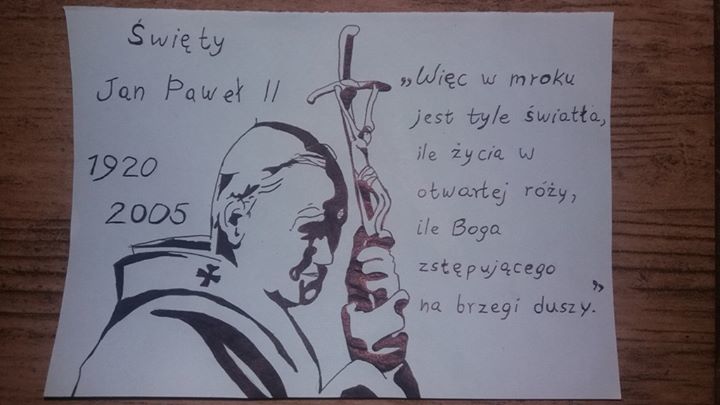 Święty
Jan Paweł II
1920
2005
„Więc w mroku
jest tyle światła,
ile życia w
otwartej róży,
ile Boga
zstępującego
na brzegi duszy.”